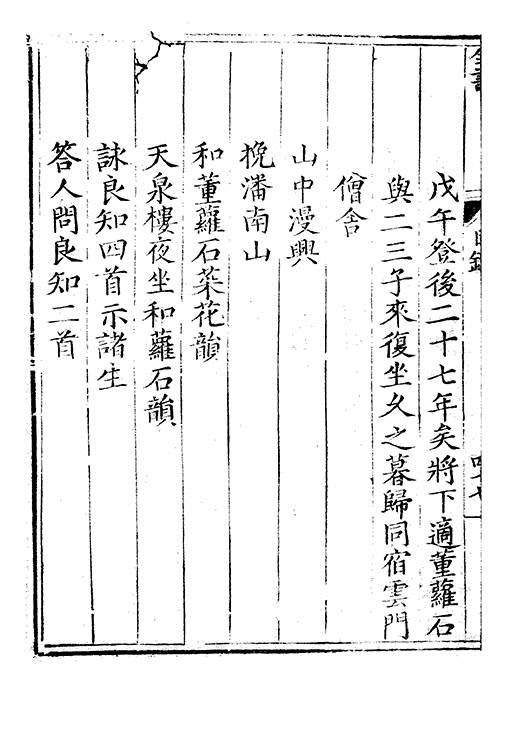 戊午登後二十七年矣將下適董蘿石
與二三子來復坐久之暮歸同宿雲門
僧舍
山中漫興
挽潘南山
和董蘿石菜花韻
天泉樓夜坐和蘿石韻
詠良知四首示諸生
答人問良知二首